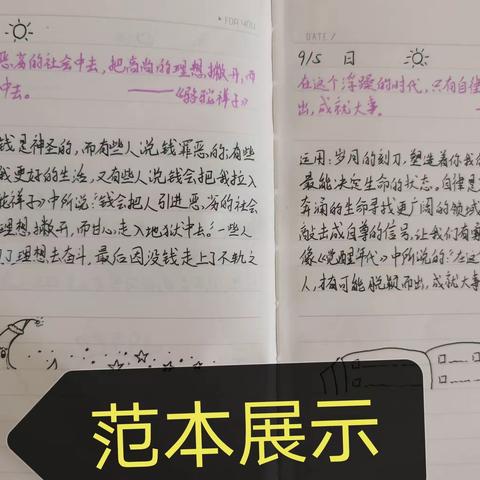 FOR YOU
恶劣的社会中去,把高尚的理想撇开,而
中去。
——《骆驼祥子》
钱是神圣的,而有些人说钱罪恶的;有些
我更好的生活,又有些人说钱会把我拉入
驼祥子》中所说:"钱会把人引进恶劣的社会
理想撇开,而甘心走入地狱中去。"一些人
了理想去奋斗,最后因没钱走上了不轨之
DATE /
9/5 日
在这个浮躁的时代,只有自律
出,成就大事。
运用:岁月的刻刀,塑造着你我
最能决定生命的状态,自律是
奔涌的生命寻找更广阔的领域
敲击成自尊的信号,让我们有
像《觉醒年代》中所说的:"在这
人,才有可能脱颖而出,成就大事
范本展示